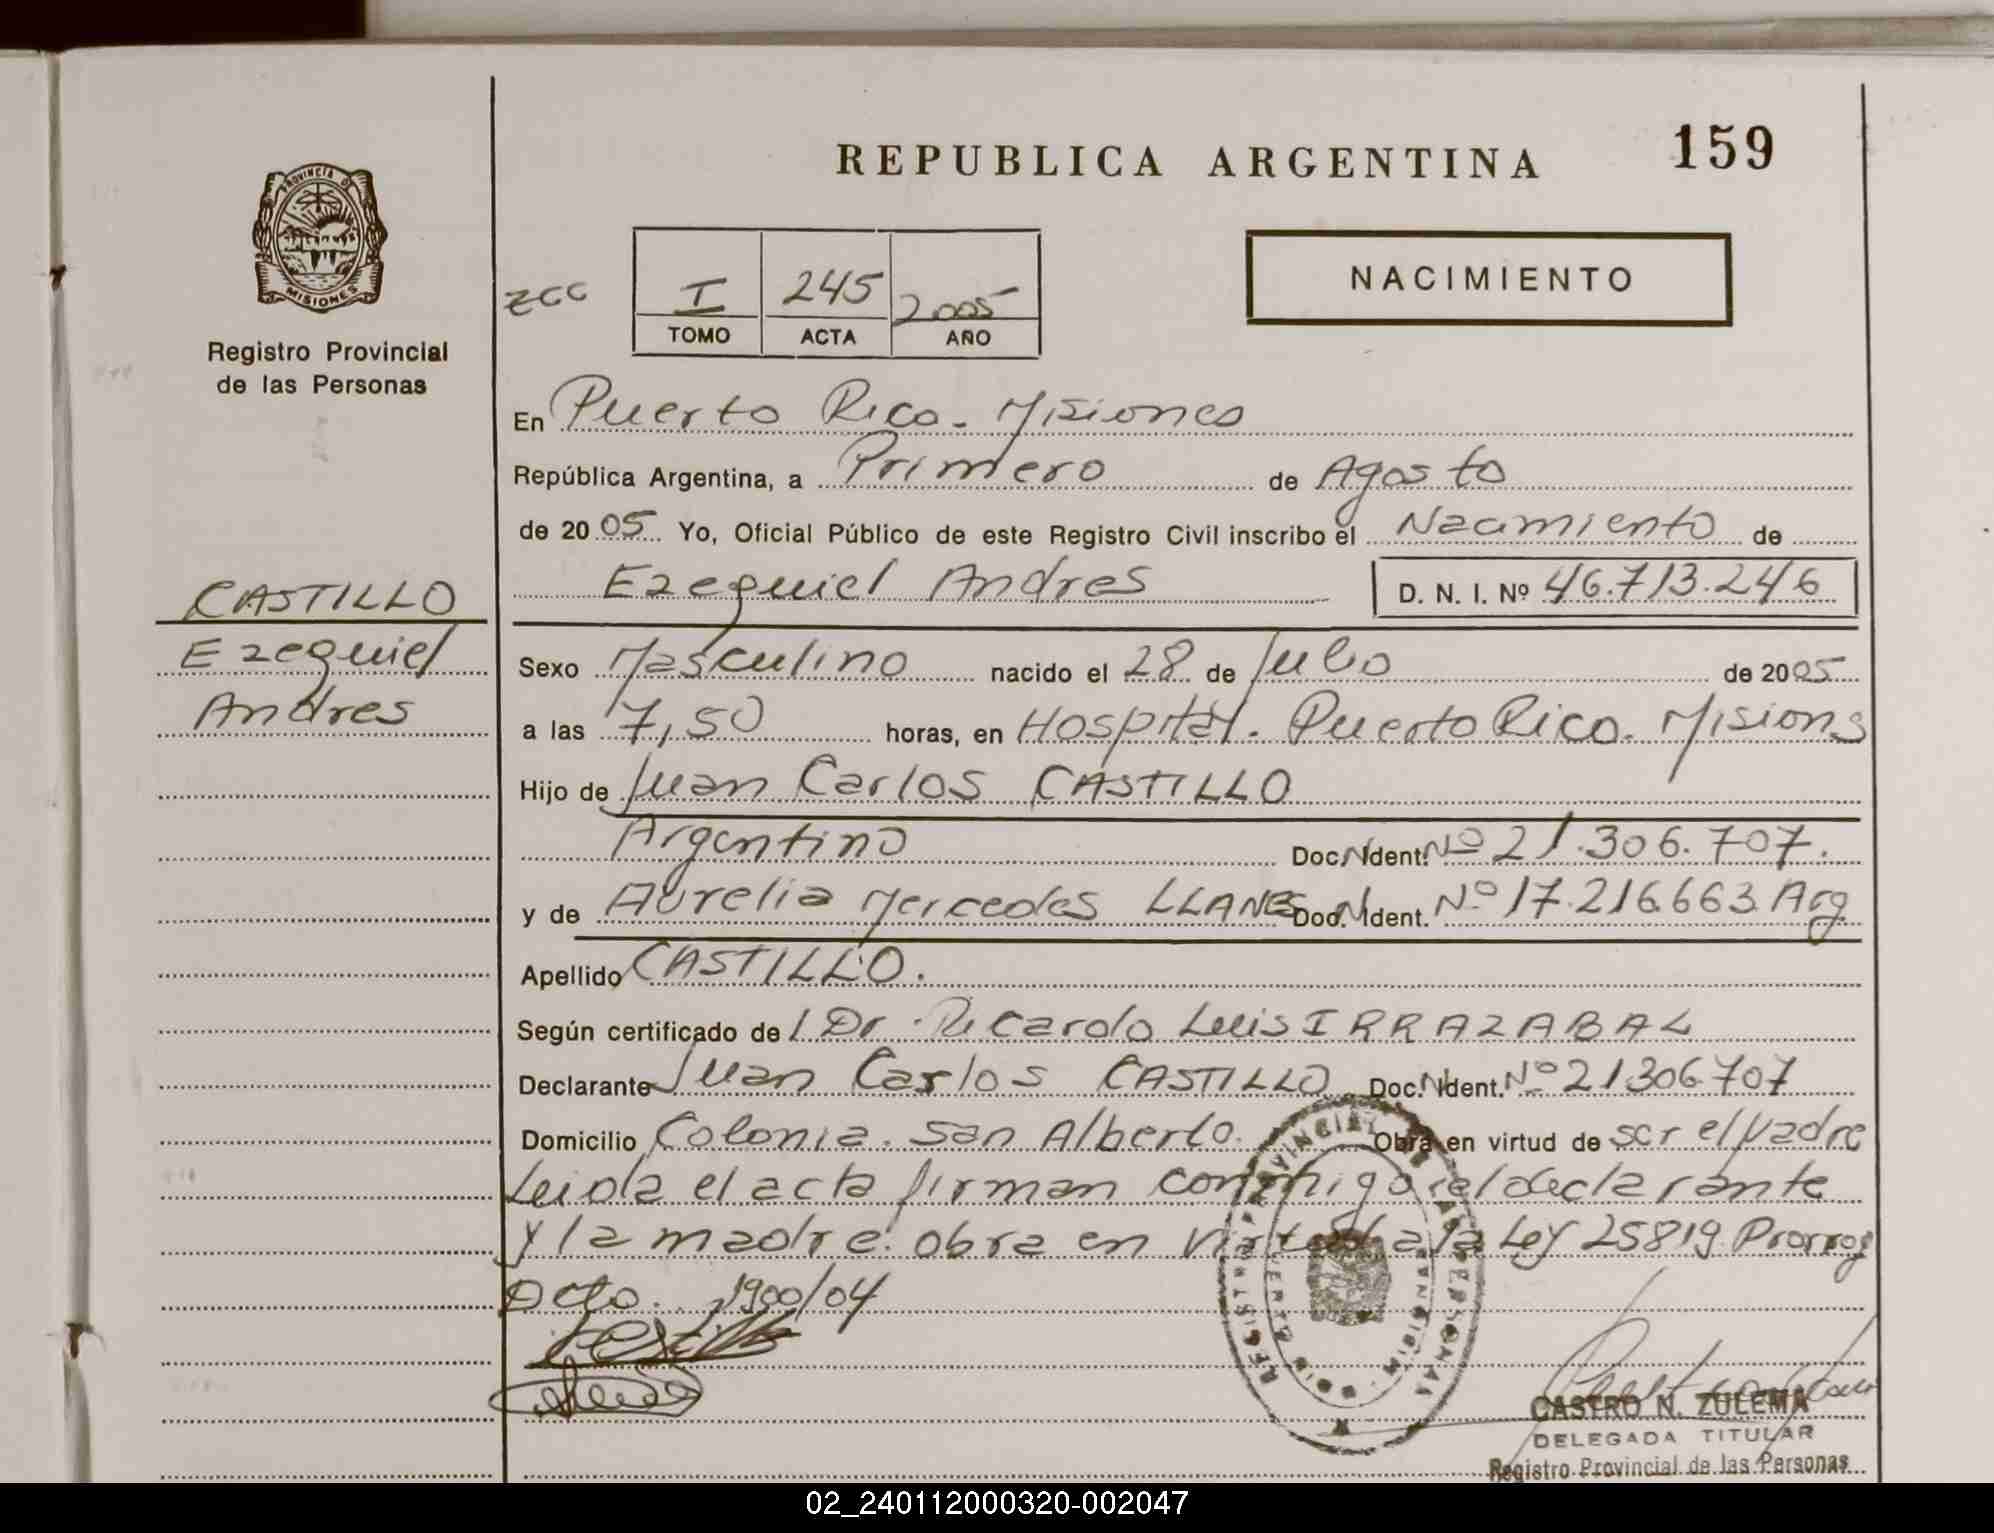 REPUBLICA ARGENTINA
159
PROVINCIA DE
MISIONES
Registro Provincial
de las Personas
zcc
I 245 2005
TOMO ACTA AÑO
NACIMIENTO
En Puerto Rico. Misiones
República Argentina, a Primero de Agosto
de 2005 Yo, Oficial Público de este Registro Civil inscribo el Nacimiento de
Ezequiel Andres D. N. I. Nº 46.713.246
CASTILLO
Ezequiel
Andres
Sexo Masculino nacido el 28 de Julio de 2005
a las 7,50 horas, en Hospital. Puerto Rico. Misions
Hijo de Juan Carlos CASTILLO
Argentino Doc. N Ident. Nº 21.306.707.
y de Aurelia Mercedes LLANES Doc. N Ident. Nº 17.216.663 Arg
Apellido CASTILLO.
Según certificado de l Dr. Ricardo Luis IRRAZABAL
Declarante Juan Carlos CASTILLO Doc. N Ident. Nº 21306707
Domicilio Colonia. San Alberto. Obra en virtud de ser el padre
Leida el acta firman conmigo el declarante
y la madre. obra en virtud a la Ley 25819 Prorrog
Dcto. 1900/04
REGISTRO PROVINCIAL DE LAS PERSONAS
CASTRO N. ZULEMA
DELEGADA TITULAR
Registro Provincial de las Personas
02_240112000320-002047